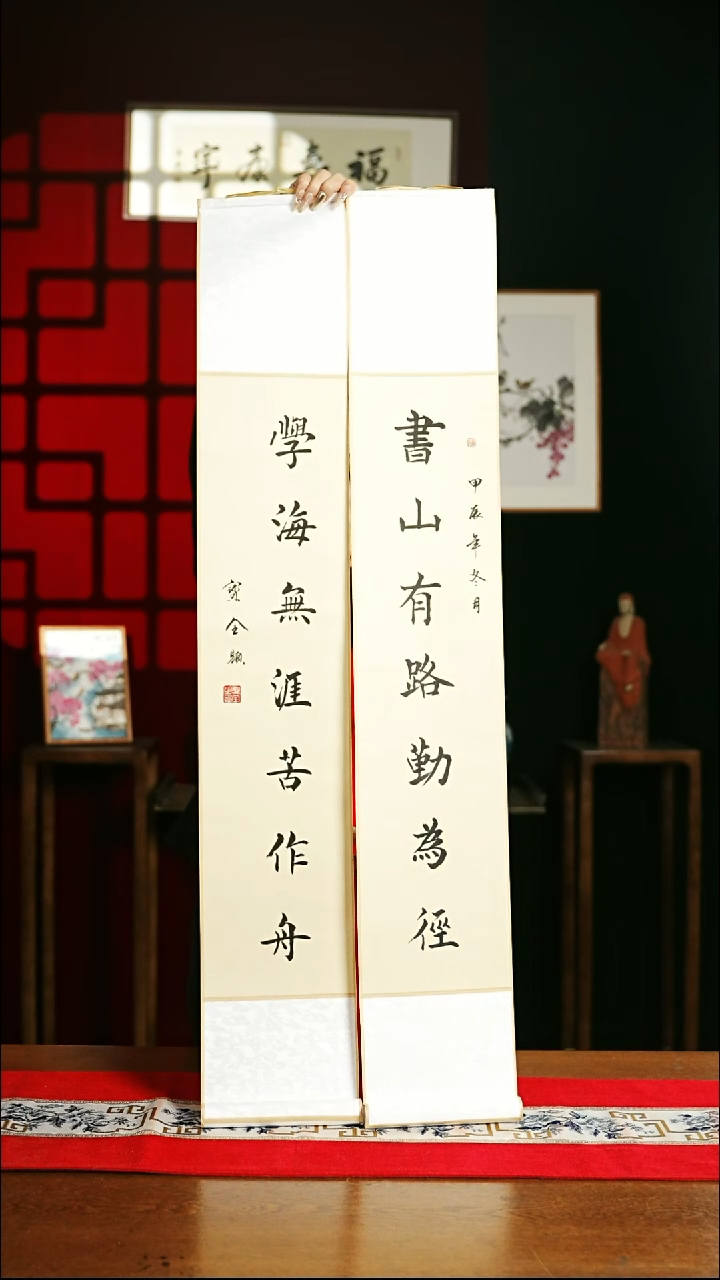 書山有路勤為徑
甲辰年冬月
學海無涯苦作舟
福壽康寧